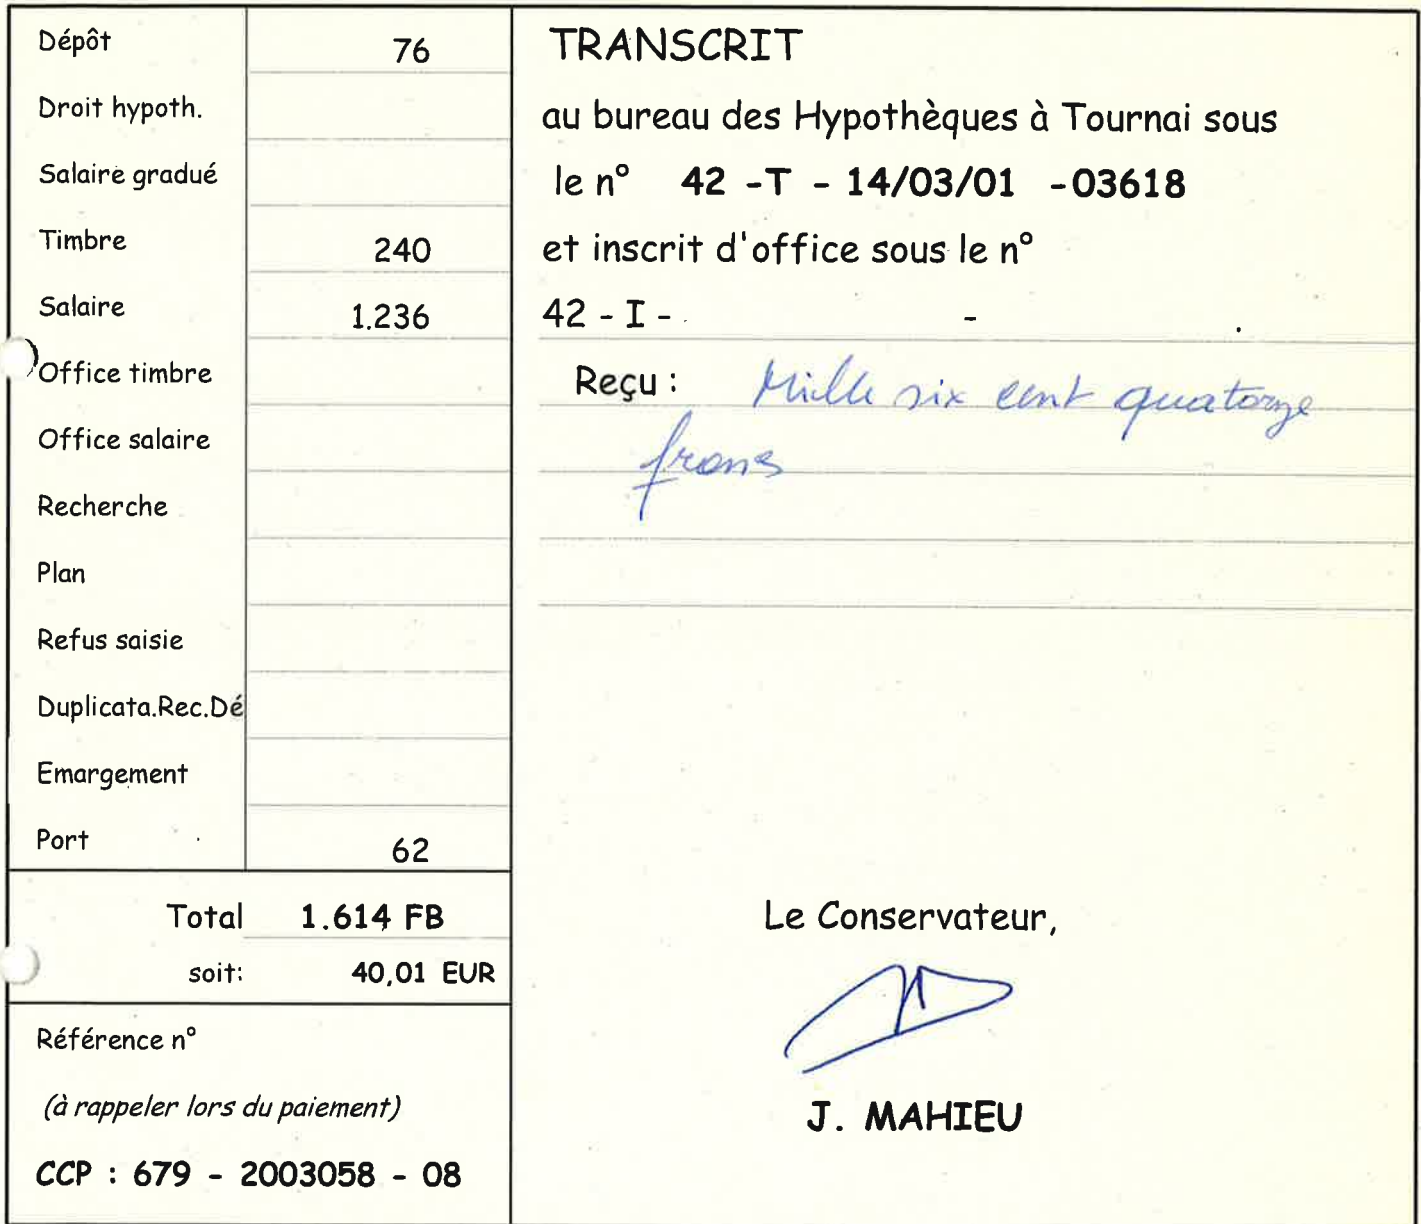 Dépôt 76
Droit hypoth.
Salaire gradué
Timbre 240
Salaire 1.236
Office timbre
Office salaire
Recherche
Plan
Refus saisie
Duplicata.Rec.Dé
Emargement
Port 62
Total 1.614 FB
soit: 40,01 EUR
Référence n°
(à rappeler lors du paiement)
CCP : 679 - 2003058 - 08
TRANSCRIT
au bureau des Hypothèques à Tournai sous
le n° 42 -T - 14/03/01 -03618
et inscrit d'office sous le n°
42 - I - - .
Reçu : Mille six cent quatorze
francs
Le Conservateur,
J. MAHIEU